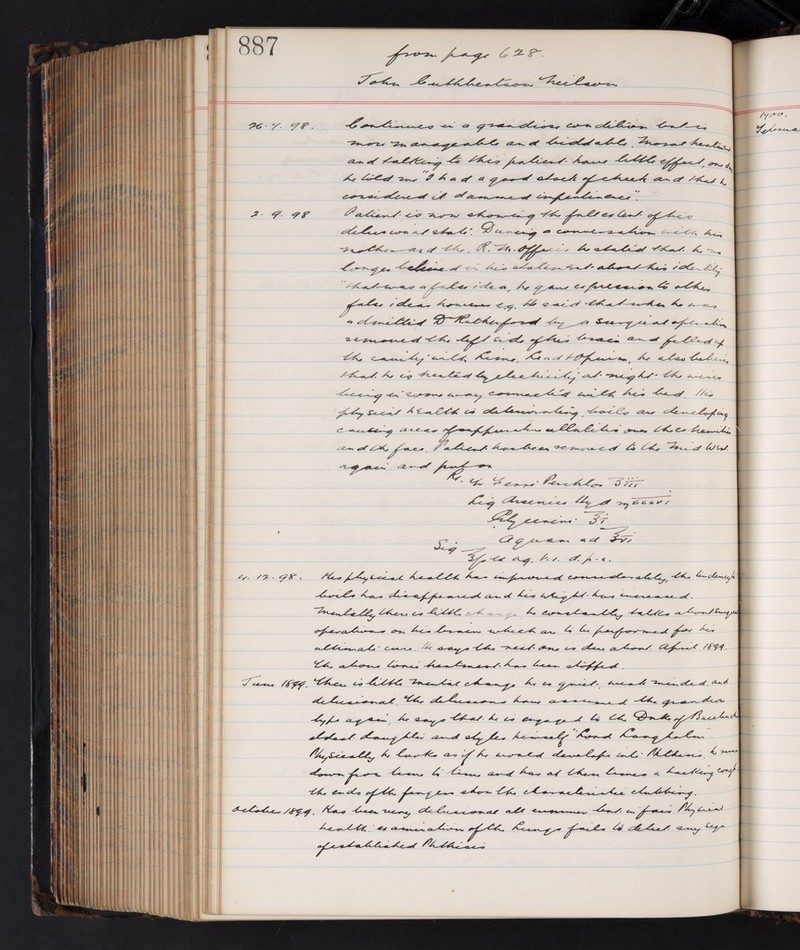 887
from page 628.
John Cuthbertson Neilson
26.7.98. Continues in a grandiose condition but is
more manageable and biddable. Moral
and talking to this patient have little effect, one day
he told me "I had a good stock of cheek and that he
considered it dammed impertinence".
2.9.98 Patient is now showing the full extent of his
delusional state. During a conversation with his
mother and the R. M. Officer he stated that he no
longer believed in his statement about his identity
"that was a false idea, he gave expression to other
false ideas however e.g. He said that when he was
admitted Dr Rutherford by a surgical operation
removed the left side of his brain and filled up
the cavity with Lime, Lead & Opium, he also believes
that he is heated by electricity at night the wires
being in some way connected with his bed. His
physical health is deteriorating, boils are developing
causing areas of suppurative cellulitis over the extremities
and the face. Patient has been removed to the Mid Ward
again and put on
Rx. Tr Ferri Perchlor ʒiii
Liq Arsenici Hyd
Glycerini ʒi
Aquam ad ℥vi
Sig ex aq. t.i.d. p.c.
4.12.98. His physical health has improved considerably, the tendency to
boils has disappeared and his weight has increased.
Mentally there is little change, he constantly talks about surgical
operations on his brain which are to be performed for his
ultimate cure. He says the next one is due about April 1899.
The above tonic treatment has been stopped.
June 1899. There is little mental change he is quiet, weak minded, and
delusional. The delusions have assumed the grandiose
type again, he says that he is engaged to the Duke of Buccleuch
eldest daughter and styles himself "Lord Langholm"
Physically he looks as if he would develope into Phthisis, he runs
down from time to time and has at these times a hacking cough
the ends of the fingers show the characteristic clubbing.
October 1899. Has been very delusional all summer but in fair Physical
health: examination of the Lungs fails to detect any sign
of established Phthisis
1900.